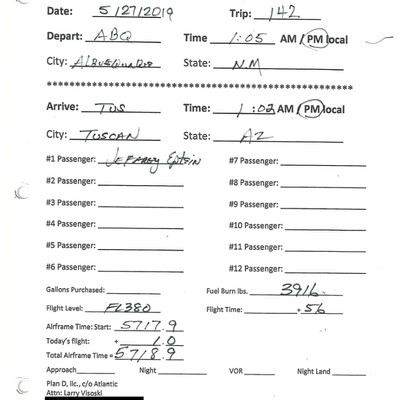 Date: 5/27/2019 Trip: 142
Depart: ABQ Time 1:05 AM / PM local
City: ALBUEQUERQUE State: N.M
**************************************************
Arrive: TUS Time: 1:02 AM / PM local
City: TUSCAN State: AZ
#1 Passenger: Jeffrey Epstein #7 Passenger:
#2 Passenger: #8 Passenger:
#3 Passenger: #9 Passenger:
#4 Passenger: #10 Passenger:
#5 Passenger: #11 Passenger:
#6 Passenger: #12 Passenger:
Gallons Purchased: Fuel Burn lbs. 3916
Flight Level: FL380 Flight Time: .56
Airframe Time: Start: 5717.9
Today's flight: + 1.0
Total Airframe Time = 5718.9
Approach Night VOR Night Land
Plan D, llc., c/o Atlantic
Attn: Larry Visoski